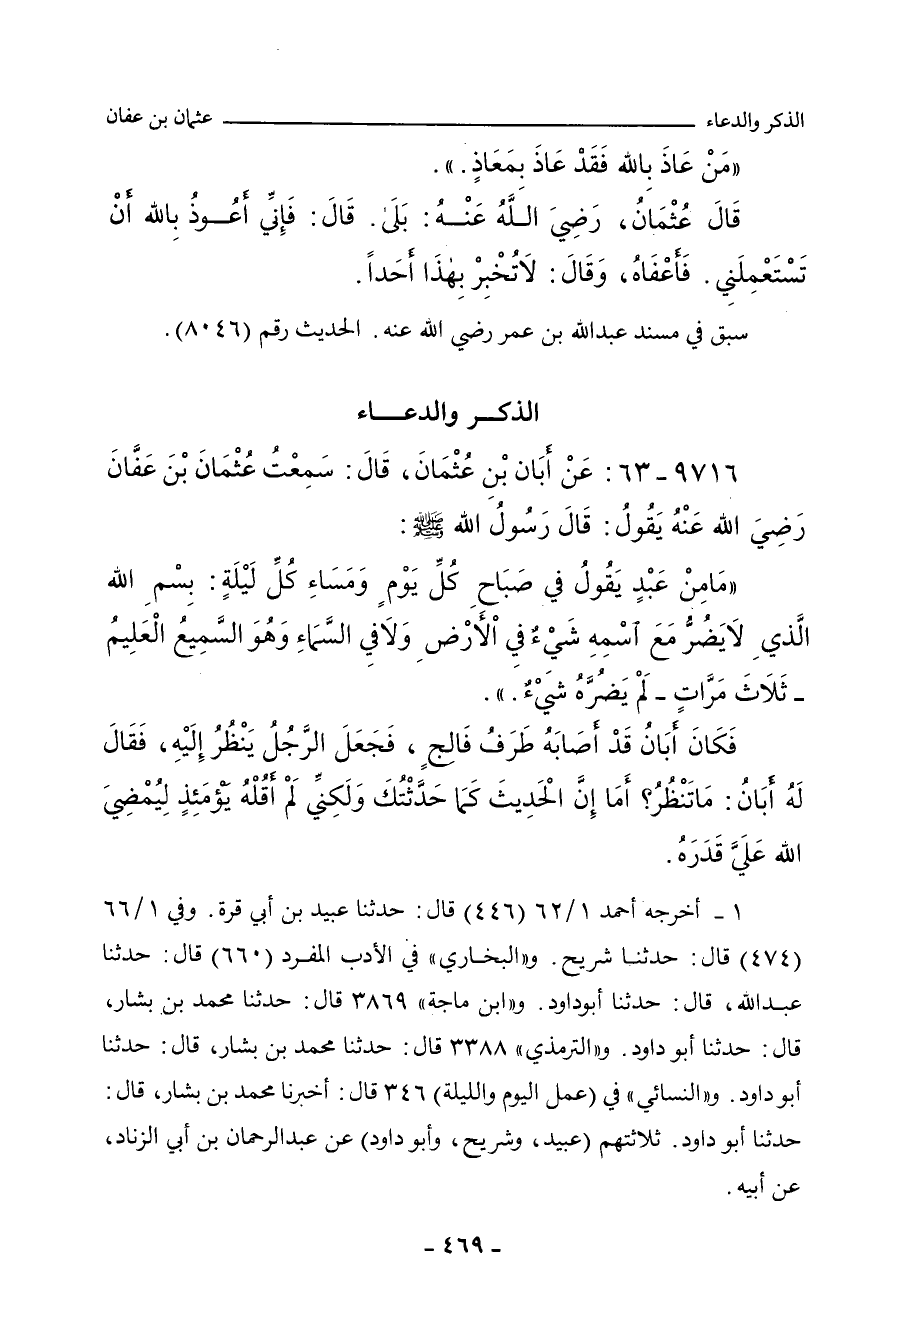 الذكر والدعاء ــــــــــــــــــــ عثمان بن عفان
«مَنْ عَاذَ بِالله فَقَدْ عَاذَ بِمَعَاذٍ.».
قَالَ عُثْمَانُ، رَضِيَ اللَّهُ عَنْهُ: بَلَىٰ. قَالَ: فَإِنِّي أَعُوذُ بِالله أَنْ
تَسْتَعْمِلَنِي. فَأَعْفَاهُ، وَقَالَ: لَاتُخْبِرْ بِهٰذَا أَحَداً.
سبق في مسند عبدالله بن عمر رضي الله عنه. الحديث رقم (٨٠٤٦).
الذكر والدعاء
٩٧١٦ - ٦٣: عَنْ أَبَان بْنِ عُثْمَانَ، قَالَ: سَمِعْتُ عُثْمَانَ بْنَ عَفَّانَ
رَضِيَ الله عَنْهُ يَقُولُ: قَالَ رَسُولُ الله ﷺ:
«مَامِنْ عَبْدٍ يَقُولُ فِي صَبَاحِ كُلِّ يَوْمٍ وَمَسَاءِ كُلِّ لَيْلَةٍ: بِسْمِ الله
الَّذِي لَايَضُرُّ مَعَ ٱسْمِهِ شَيْءٌ فِي الْأَرْضِ وَلَافِي السَّمَاءِ وَهُوَ السَّمِيعُ الْعَلِيمُ
- ثَلَاثَ مَرَّاتٍ - لَمْ يَضُرَّهُ شَيْءٌ.».
فَكَانَ أَبَانُ قَدْ أَصَابَهُ طَرَفُ فَالِجٍ، فَجَعَلَ الرَّجُلُ يَنْظُرُ إِلَيْهِ، فَقَالَ
لَهُ أَبَانُ: مَاتَنْظُرُ؟ أَمَا إِنَّ الْحَدِيثَ كَمَا حَدَّثْتُكَ وَلَكِنِّي لَمْ أَقُلْهُ يَوْمَئِذٍ لِيُمْضِيَ
الله عَلَيَّ قَدَرَهُ.
١ - أخرجه أحمد ٦٢/١ (٤٤٦) قال: حدثنا عبيد بن أبي قرة. وفي ٦٦/١
(٤٧٤) قال: حدثنا شريح. و«البخاري» في الأدب المفرد (٦٦٠) قال: حدثنا
عبدالله، قال: حدثنا أبوداود. و«ابن ماجة» ٣٨٦٩ قال: حدثنا محمد بن بشار،
قال: حدثنا أبو داود. و«الترمذي» ٣٣٨٨ قال: حدثنا محمد بن بشار، قال: حدثنا
أبو داود. و«النسائي» في (عمل اليوم والليلة) ٣٤٦ قال: أخبرنا محمد بن بشار، قال:
حدثنا أبو داود. ثلاثتهم (عبيد، وشريح، وأبو داود) عن عبدالرحمان بن أبي الزناد،
عن أبيه.
- ٤٦٩ -